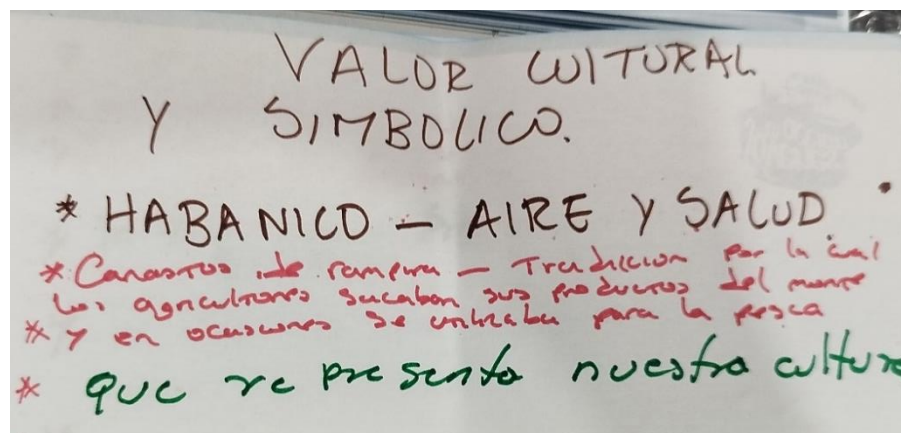 VALOR CULTURAL
Y SIMBOLICO.
* HABANICO - AIRE Y SALUD.
* Canastos de rampira - Tradicion por la cual
los agricultores sacaban sus productos del monte
* y en ocasiones se utilizaba para la pesca
* que representa nuestra cultura